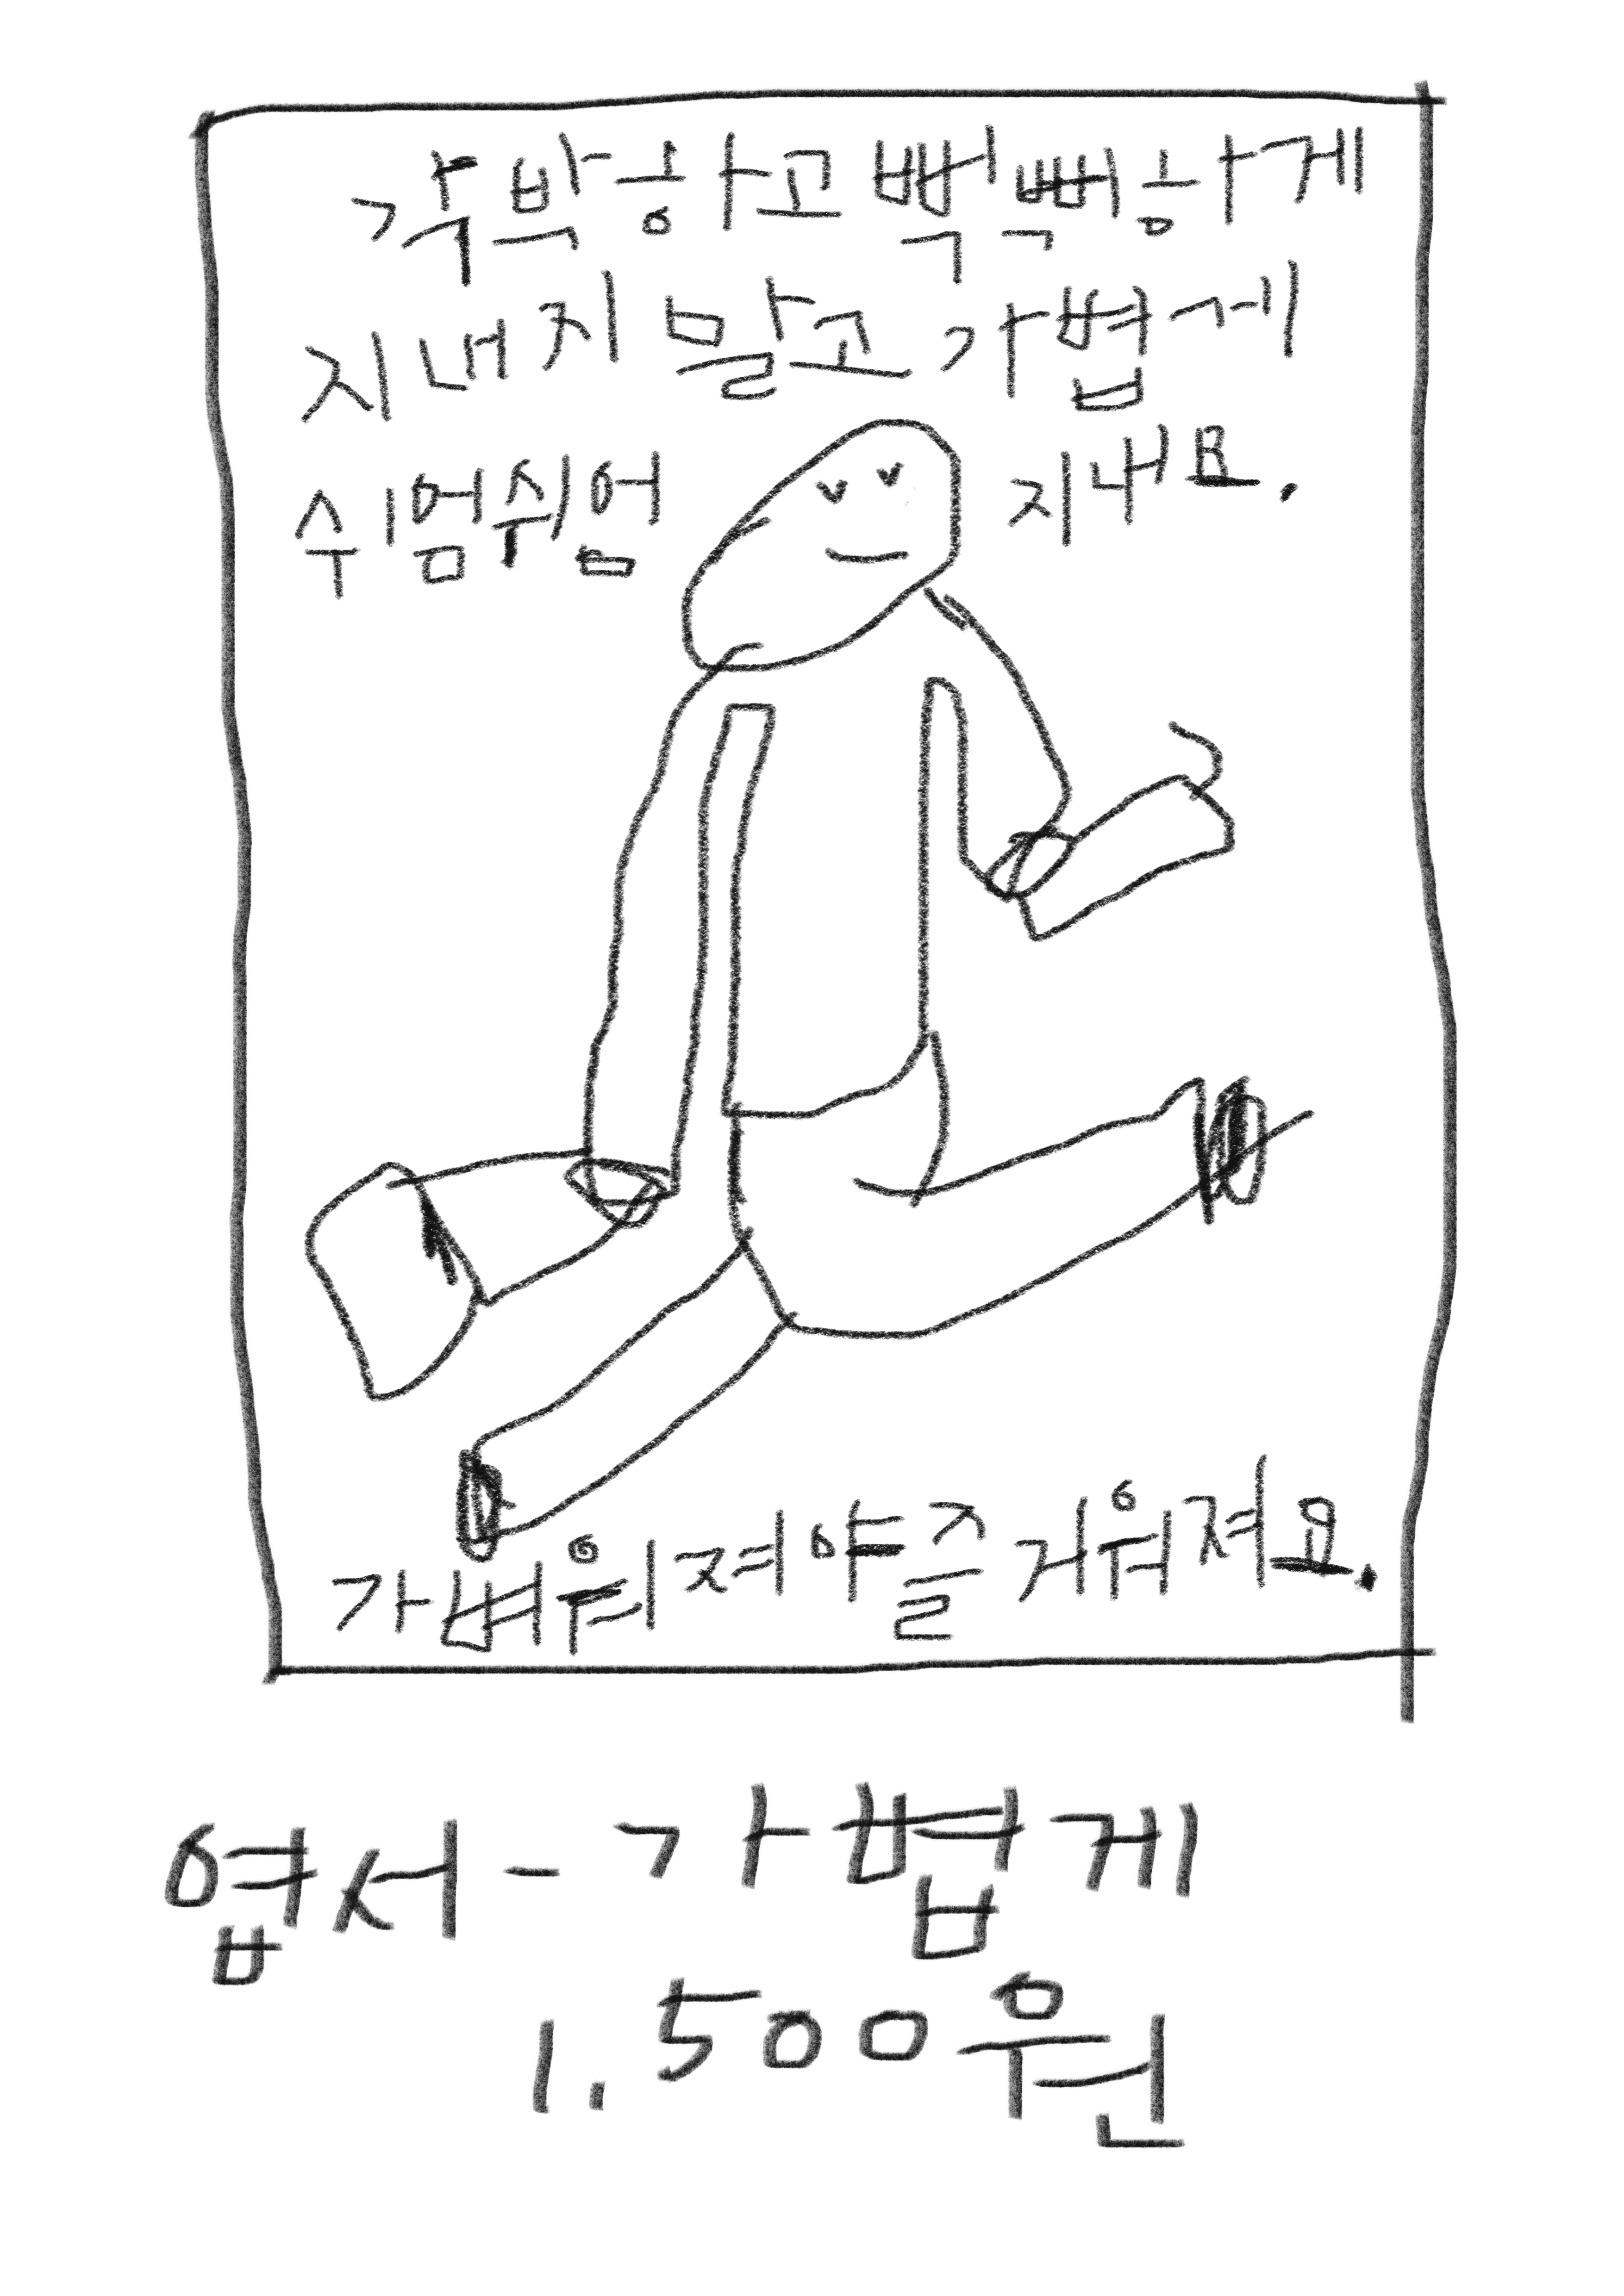 각박하고 빡빽하게
지내지 말고 가볍게
쉬엄쉬엄 지내요.
가벼워져야 즐거워져요.
엽서-가볍게
1.500원